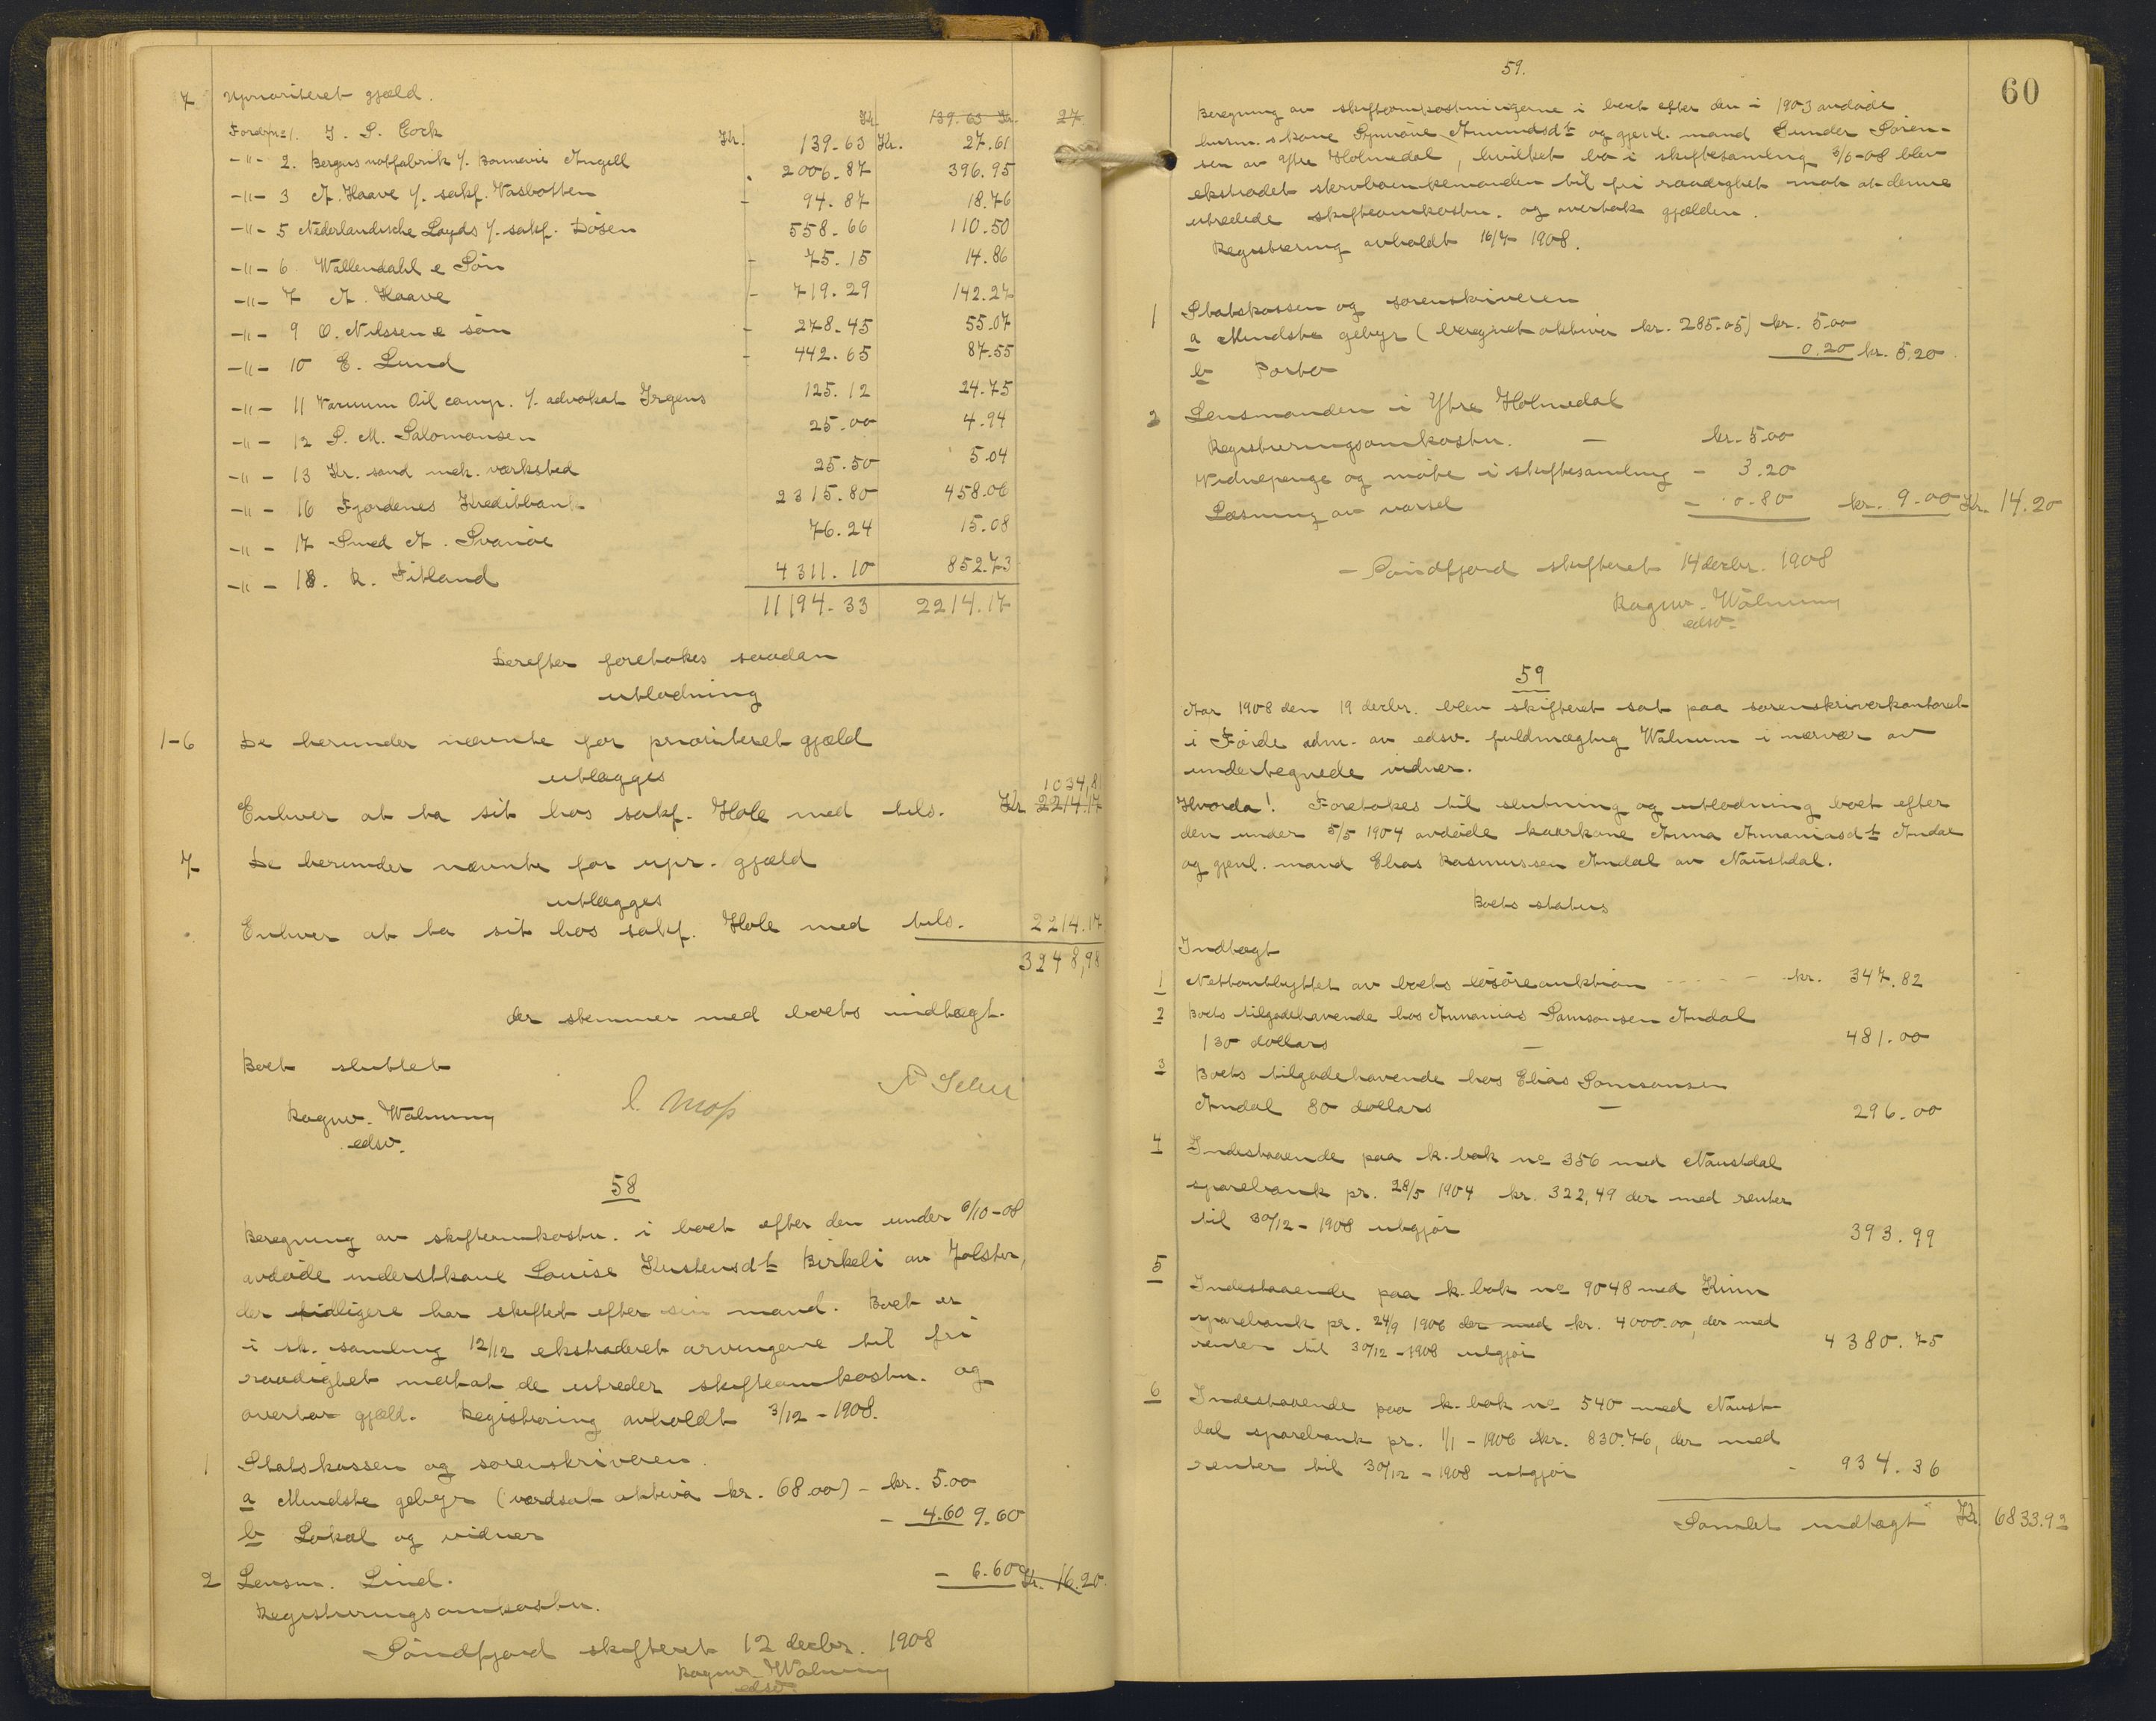 7 Uprioriteret gjæld.
Kr. 139.63 Kr. 27
Fordr. no 1. J. S. Cock Kr. 139.63 Kr. 27.61
-"- 2. Bergens notfabrik v. Bonnevie Angell 2006.87 396.95
-"- 3 A. Haave v. sakf. Vasbotten - 94.87 18.76
-"- 5 Nederlandische Loyds v. sakf. Døsen 558.66 110.50
-"- 6 Wallendahl & Søn - 75.15 14.86
-"- 7 A. Haave - 719.29 142.27
-"- 9 O. Nilssen & søn - 278.45 55.07
-"- 10 E. Lund - 442.65 87.55
-"- 11 Vacuum Oil comp. v. advokat Irgens 125.12 24.75
-"- 12 S. M. Salomonsen 25.00 4.94
-"- 13 Kr. sand mek. værksted 25.50 5.04
-"- 16 Fjordenes Kreditbank 2315.80 458.06
-"- 17 Smed A. Svanøe 76.24 15.08
-"- 18. R. Fitland 4311.10 852.73
11194.33 2214.17
Derefter foretokes saadan
utlodning
1-6 De herunder nævnte for prioriteret gjæld
utlægges
1034,81
Enhver at ta sit hos sakf. Hole med tils. Kr 2214.17
7 De herunder nævnte for upr. gjæld
utlægges
Enhver at ta sit hos sakf. Hole med tils. 2214.17
3248,98
der stemmer med boets indtægt.
Boet sluttet
Ragnv. Walnum
edsv.
58
Beregning av skifteomkostn. i boet efter den under 6/10-08
avdøde inderstkone Louise Kristensdt Birkeli av Jølster,
der tidligere har skiftet efter sin mand. Boet er
i sk. samling 12/12 ekstraderet arvingene til fri
raadighet mot at de utreder skifteomkostn. og
overtar gjæld. Registrering avholdt 3/12 - 1908.
1 Statskassen og sorenskriveren.
a Mindste gebyr (værdsat aktiva kr. 68.00) - kr. 5.00
b Lokal og vidner - 4.60 9.60
2 Lensm. Lind.
Registreringsomkostn. - 6.60 Kr. 16.20
Søndfjord skifteret 12 decbr. 1908
Ragnv. Walnum
edsv.
59.
60
Beregning av skifteomkostningerne i boet efter den i 1903 avdøde
husm.skone Synnøve Amundsdt og gjenl. mand Gunder Søren-
sen av Ytre Holmedal, hvilket bo i skiftesamling 3/6-08 blev
ekstradet skrubæmkemanden til fri raadighet mot at denne
utredede skifteomkostn. og overtok gjælden.
Registrering avholdt 16/7 1908.
1 Statskassen og sorenskriveren
a Mindste gebyr (beregnet aktiva kr. 285.05) kr. 5.00
b Porto 0.20 kr. 5.20
2 Lensmanden i Ytre Holmedal
Registreringsomkostn. - kr. 5.00
Vidnepenge og møte i skiftesamling - 3.20
Læsning av varsel - 0.80 kr. 9.00 Kr. 14.20
Søndfjord skifteret 14 decbr. 1908
Ragnv. Walnum
edsv.
59
Aar 1908 den 19 decbr. blev skifteret sat paa sorenskriverkontoret
i Førde adm. av edsv. fuldmægtig Walnum i nærvær av
undertegnede vidner.
Hvorda! Foretokes til slutning og utlodning boet efter
den under 5/5 1904 avdøde kaarkone Anna Ananiasdt Andal
og gjenl. mand Elias Rasmussen Andal av Naustdal.
Boets status
Indtægt
1 Nettoutbyttet av boets løsøreauktion - - - kr. 347.82
2 Boets tilgodehavende hos Annanias Samsonsen Andal
130 dollars - 481.00
3 Boets tilgodehavende hos Elias Samsonsen
Andal 80 dollars - 296.00
4 Indestaaende paa k.bok no 356 med Naustdal
sparebank pr. 28/5 1904 kr. 322,49 der med renter
til 30/12 - 1908 utgjør 393.99
5 Indestaaende paa k.bok no 9048 med Kinn
sparebank pr. 24/9 1906 der med kr. 4000.00, der med
renter til 30/12 - 1908 utgjør 4380.75
6 Indestaaende paa k.bok no 540 med Naust-
dal sparebank pr. 1/1 - 1906 kr. 830.76, der med
renter til 30/12 - 1908 utgjør - 934.36
Samlet indtægt Kr. 6833.92